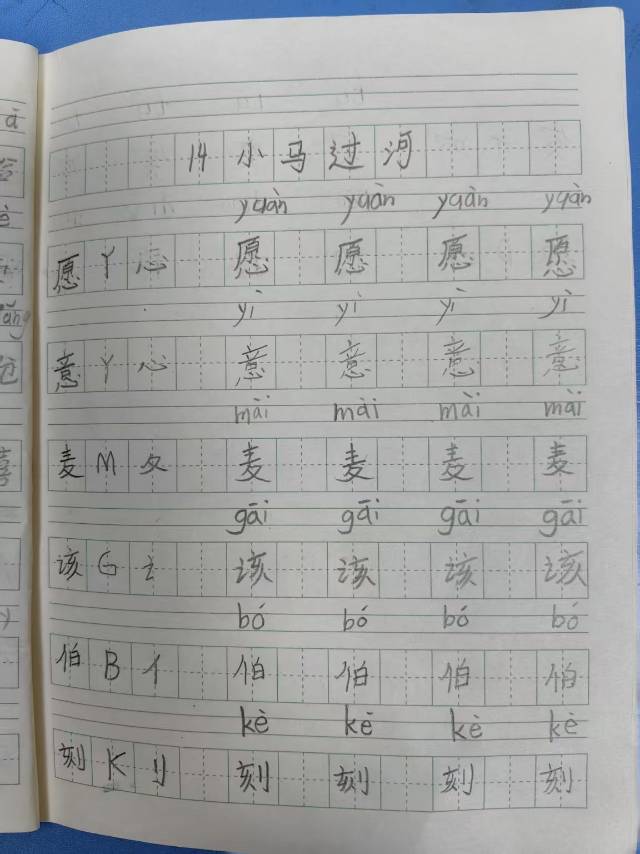 14 小马过河
yuàn yuàn yuàn yuàn
愿 Y 心 愿 愿 愿 愿
yì yì yì yì
意 Y 心 意 意 意 意
mài mài mài mài
麦 M 夂 麦 麦 麦 麦
gāi gāi gāi gāi
该 G 讠 该 该 该 该
bó bó bó bó
伯 B 亻 伯 伯 伯 伯
kè kè kè kè
刻 K 刂 刻 刻 刻 刻